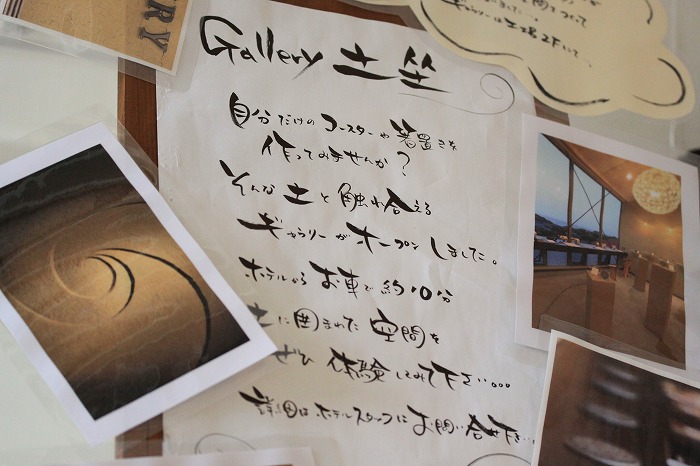 RY
土に囲まれて
ギャラリーは土場2Fにて...
Gallery 土坐
自分だけのコースターや箸置きを
作ってみませんか?
そんな土と触れ合える
ギャラリーがオープンしました。
ホテルからお車で約10分
土に囲まれた空間を
ぜひ体験してみて下さい。。。
詳細はホテルスタッフにお問い合せ下さい..